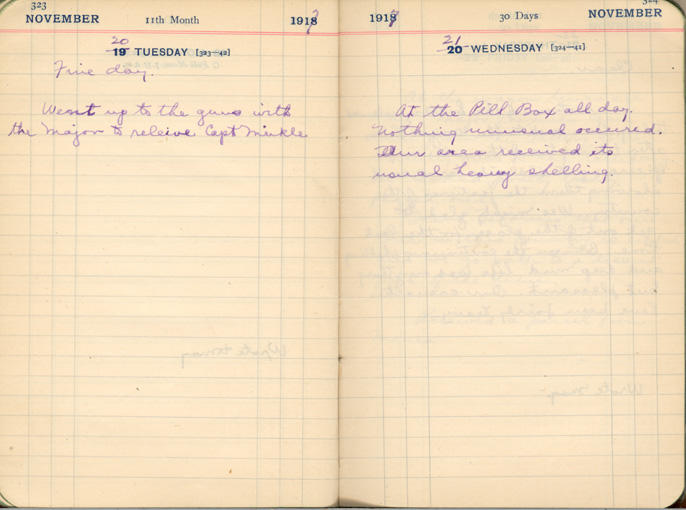 323
NOVEMBER 11th Month 1918 7
20
19 TUESDAY [323—42]
Fine day.
Went up to the guns with
the Major to releive Capt Minkle
324
1918 7 30 Days NOVEMBER
21
20 WEDNESDAY [324—41]
At the Pill Box all day.
Nothing unusual occured.
Our area received its
usual heavy shelling.